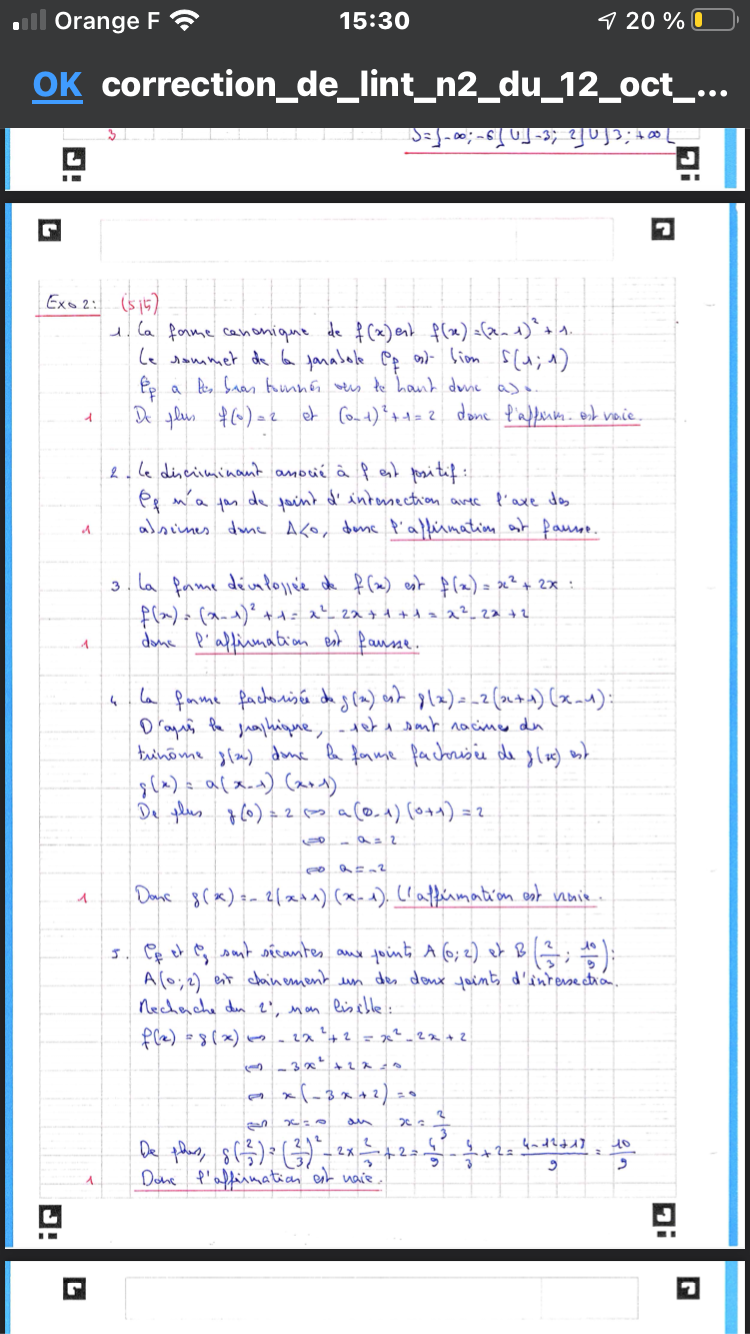 Orange F 15:30 20 %
OK correction_de_lint_n2_du_12_oct_...
3 S=]-∞;-6[U]-3; 2]U]3;+∞[
Exo 2: (5/5)
1. La forme canonique de f(x) est f(x)=(x-1)²+1.
Le sommet de la parabole Cf est bien S(1;1)
Cf a les bras tournés vers le haut donc a>0.
1 De plus f(0)=2 et (0-1)²+1=2 donc l'affirm. est vraie.
2. Le discriminant associé à f est positif:
Cf n'a pas de point d'intersection avec l'axe des
1 abscisses donc Δ<0, donc l'affirmation est fausse.
3. La forme développée de f(x) est f(x)=x²+2x:
f(x)=(x-1)²+1=x²-2x+1+1=x²-2x+2
1 donc l'affirmation est fausse.
4. La forme factorisée de g(x) est g(x)=-2(x+1)(x-1):
D'après le graphique, -1 et 1 sont racines du
trinôme g(x) donc la forme factorisée de g(x) est
g(x)=a(x-1)(x+1)
De plus g(0)=2 ⟺ a(0-1)(0+1)=2
⟺ -a=2
⟺ a=-2
1 Donc g(x)=-2(x+1)(x-1). L'affirmation est vraie.
5. Cf et Cg sont sécantes aux points A(0;2) et B(2/3; 10/9):
A(0;2) est clairement un des deux points d'intersection.
Recherche du 2e, non lisible:
f(x)=g(x) ⟺ -2x²+2=x²-2x+2
⟺ -3x²+2x=0
⟺ x(-3x+2)=0
⟺ x=0 ou x=2/3
De plus, g(2/3)=(2/3)²-2×2/3+2=4/9-4/3+2=(4-12+18)/9=10/9
1 Donc l'affirmation est vraie.